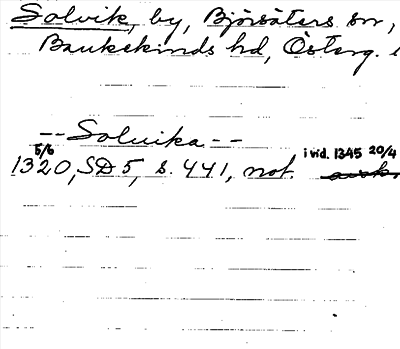 Solvik, by, Björsäters sn,
Bankekinds hd, Österg. l
-- Soluika --
1320 5/6, SD 5, s. 441, not. i vid. 1345 20/4